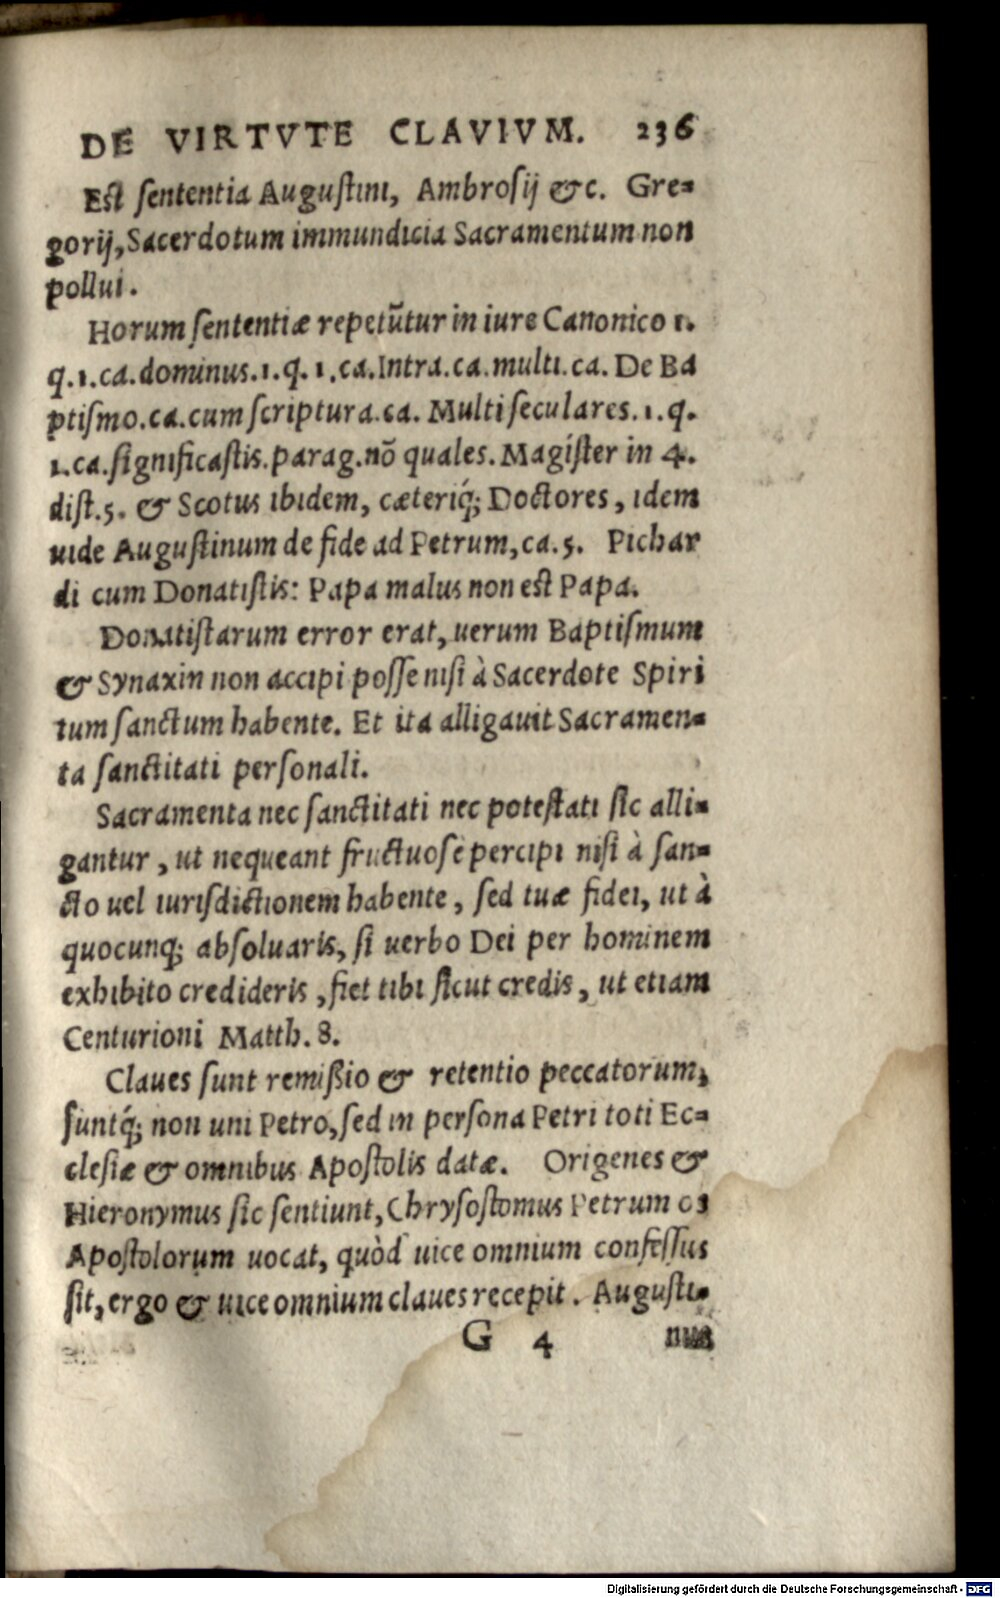 DE VIRTVTE CLAVIVM. 236
Est sententia Augustini, Ambrosij &c. Gre-
gorij, Sacerdotum immundicia Sacramentum non
pollui.
Horum sententiæ repetũtur in iure Canonico 1.
q.1.ca.dominus.1.q.1.ca.Intra.ca.multi.ca. De Ba
ptismo.ca.cum scriptura.ca. Multi seculares.1.q.
1.ca.significastis.parag.nõ quales. Magister in 4.
dist.5. & Scotus ibidem, cæteriq́; Doctores, idem
uide Augustinum de fide ad Petrum, ca.5. Pichar
di cum Donatistis: Papa malus non est Papa.
Donatistarum error erat, uerum Baptismum
& Synaxin non accipi posse nisi à Sacerdote Spiri
tum sanctum habente. Et ita alligauit Sacramen-
ta sanctitati personali.
Sacramenta nec sanctitati nec potestati sic alli-
gantur, ut nequeant fructuose percipi nisi à san-
cto uel iurisdictionem habente, sed tuæ fidei, ut à
quocunq; absoluaris, si uerbo Dei per hominem
exhibito credideris, fiet tibi sicut credis, ut etiam
Centurioni Matth.8.
Claues sunt remißio & retentio peccatorum,
suntq́; non uni Petro, sed in persona Petri toti Ec-
clesiæ & omnibus Apostolis datæ. Origenes &
Hieronymus sic sentiunt, Chrysostomus Petrum os
Apostolorum uocat, quòd uice omnium confessus
sit, ergo & uice omnium claues recepit. Augusti-
G 4 nus
Digitalisierung gefördert durch die Deutsche Forschungsgemeinschaft - DFG